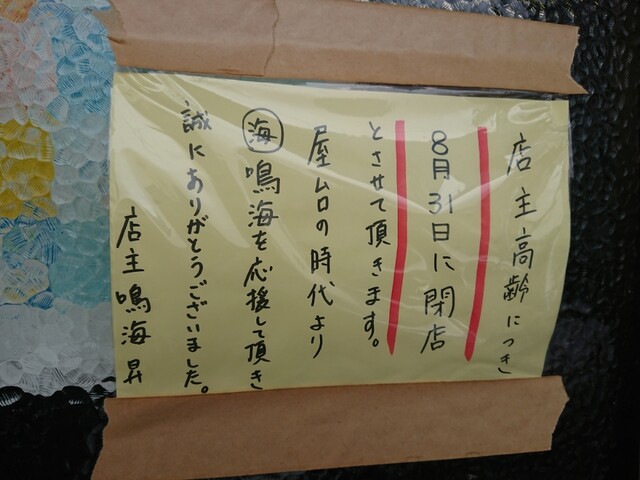 店主高齢につき
8月31日に閉店
とさせて頂きます。
屋ムロの時代より
海鳴海を応援して頂き
誠にありがとうございました。
店主鳴海昇